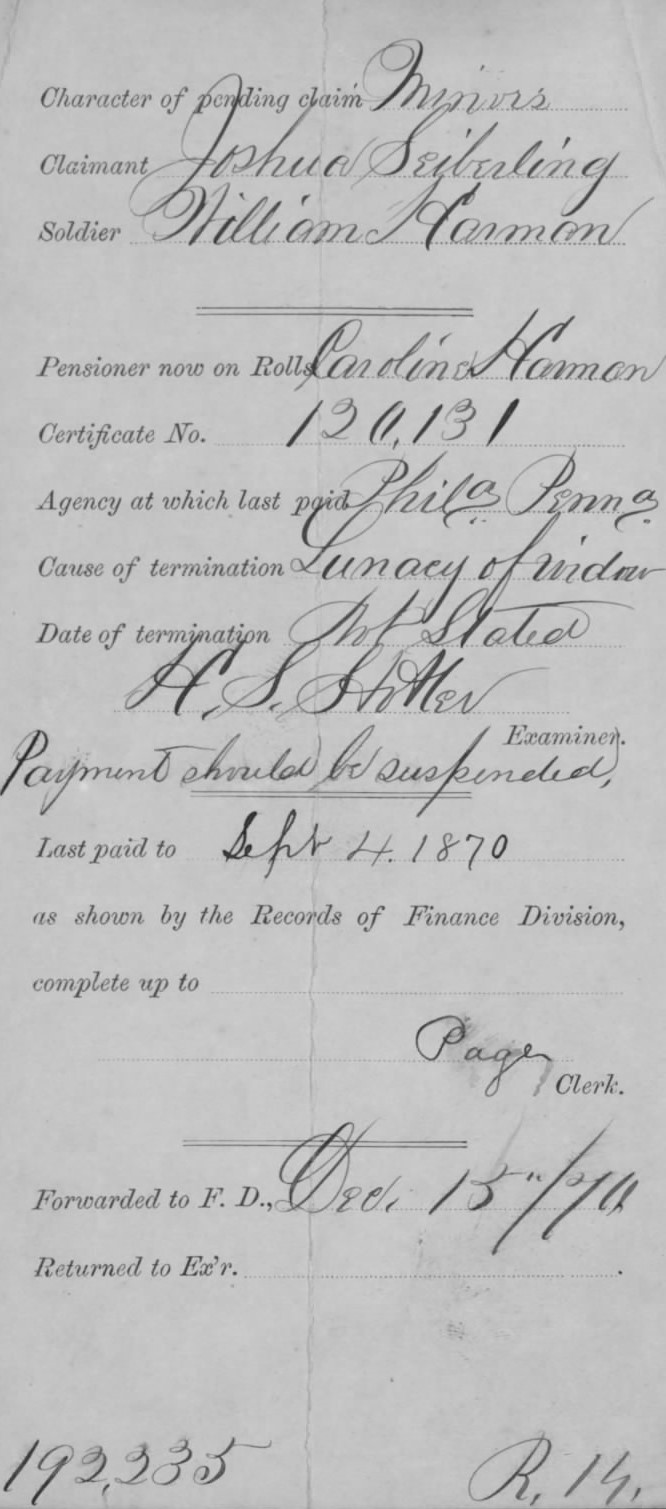 Character of pending claim Minors
Claimant Joshua Seiberling
Soldier William Harmon
Pensioner now on Rolls Caroline Harmon
Certificate No. 120,131
Agency at which last paid Phila Penna
Cause of termination Lunacy of widow
Date of termination Not Stated
H. S.
Examiner.
Payment should be suspended,
Last paid to Sept 4. 1870
as shown by the Records of Finance Division,
complete up to
Page
Clerk.
Forwarded to F. D., Dec. 15"/70
Returned to Ex'r.
192,235 R. 14.